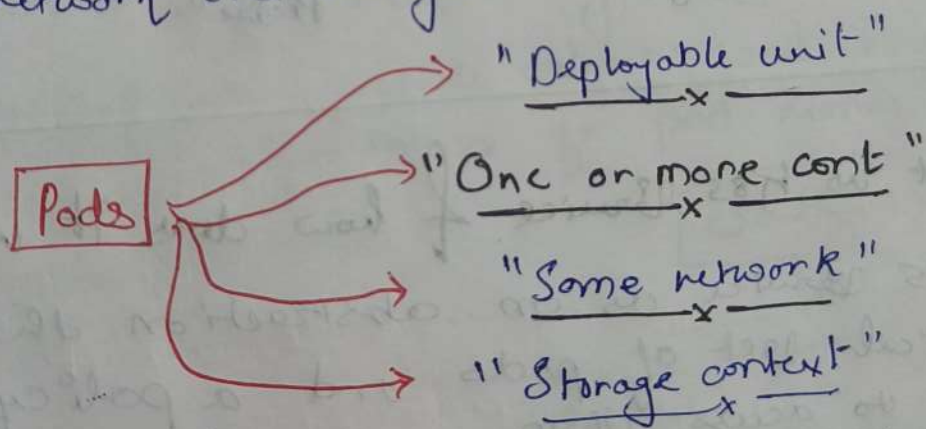 "Deployable unit"
"One or more cont"
Pods
"Same network"
"Storage context"